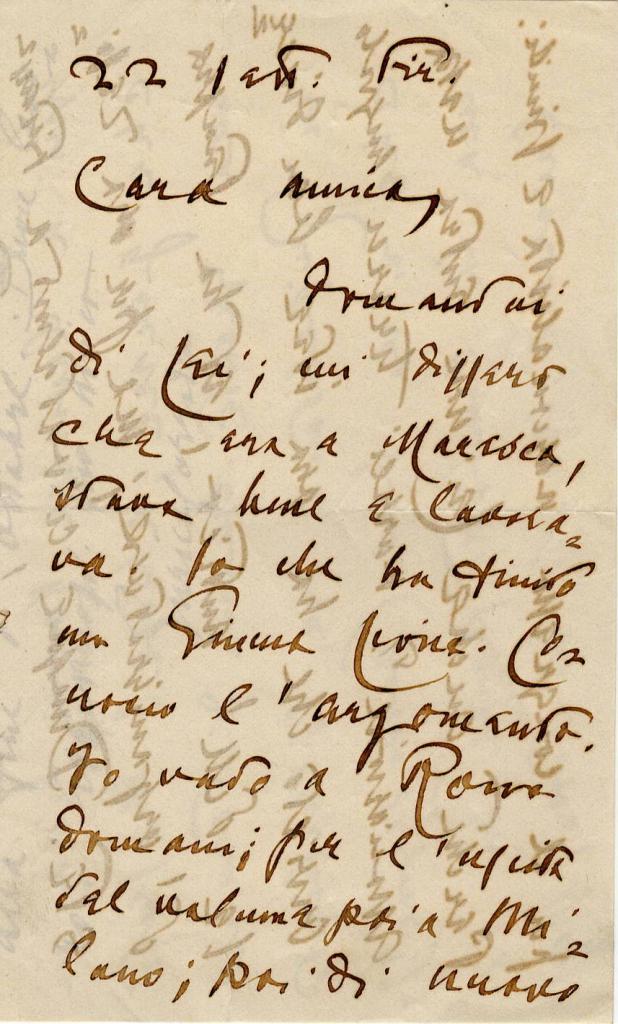 22 sett. Fir.
Cara amica,
domandai
di Lei; mi dissero
che era a Marsoca,
stava bene e lavora=
va. So che ha finito
un Lirica. Co=
nosco l'argomento.
Io vado a Roma
domani; per l'uscita
del volume poi a Mi=
lano; poi di nuovo